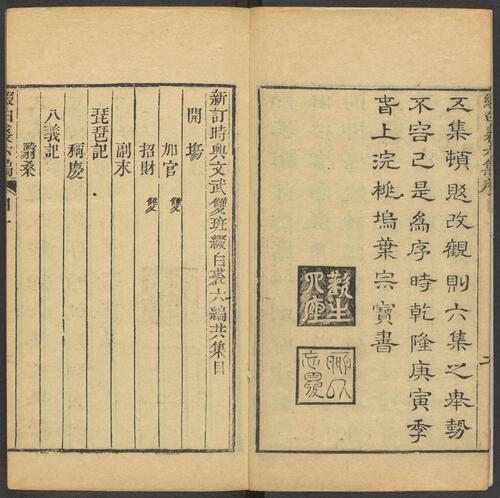 五集頓殷改觀則六集之舉勢
不容已是為序時乾隆庚寅季
春上浣桃塢葉宗寶書
新訂時興文武雙班綴白裘六編共集目
開場
加官 雙
招財 雙
副末
琵琶記
稱慶
八義記
翳桑
綴白裘六編